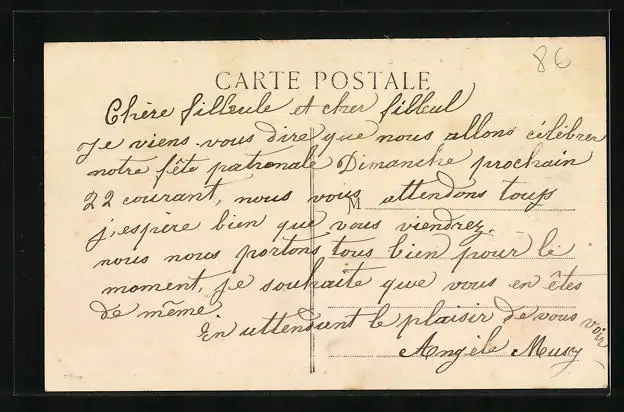 86
CARTE POSTALE
Chère filleule et cher filleul
Je viens vous dire que nous allons célébrer
notre fête patronale Dimanche prochain
22 courant, nous vous attendons tous
M
j'espère bien que vous viendrez.
nous nous portons tous bien pour le
moment, je souhaite que vous en êtes
de même
En attendant le plaisir de vous voir
Angèle